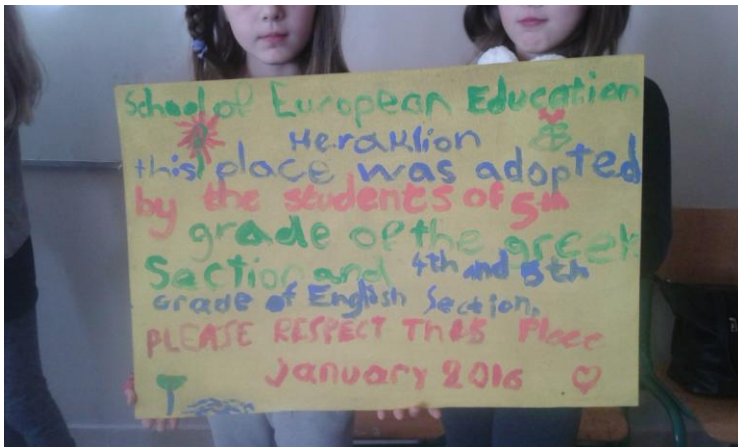 School of European Education
Heraklion
this place was adopted
by the students of 5th
grade of the greek
Section and 4th and 5th
Grade of English Section.
PLEASE RESPECT This Place
January 2016